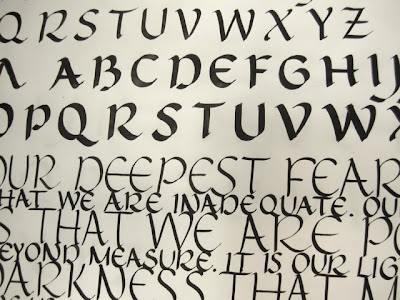 QRSTUVWXYZ
ABCDEFGHIJ
OPQRSTUVWX
OUR DEEPEST FEAR
HAT WE ARE INADEQUATE. OU
S THAT WE ARE PO
BEYOND MEASURE. IT IS OUR LIG
DARKNESS THAT M